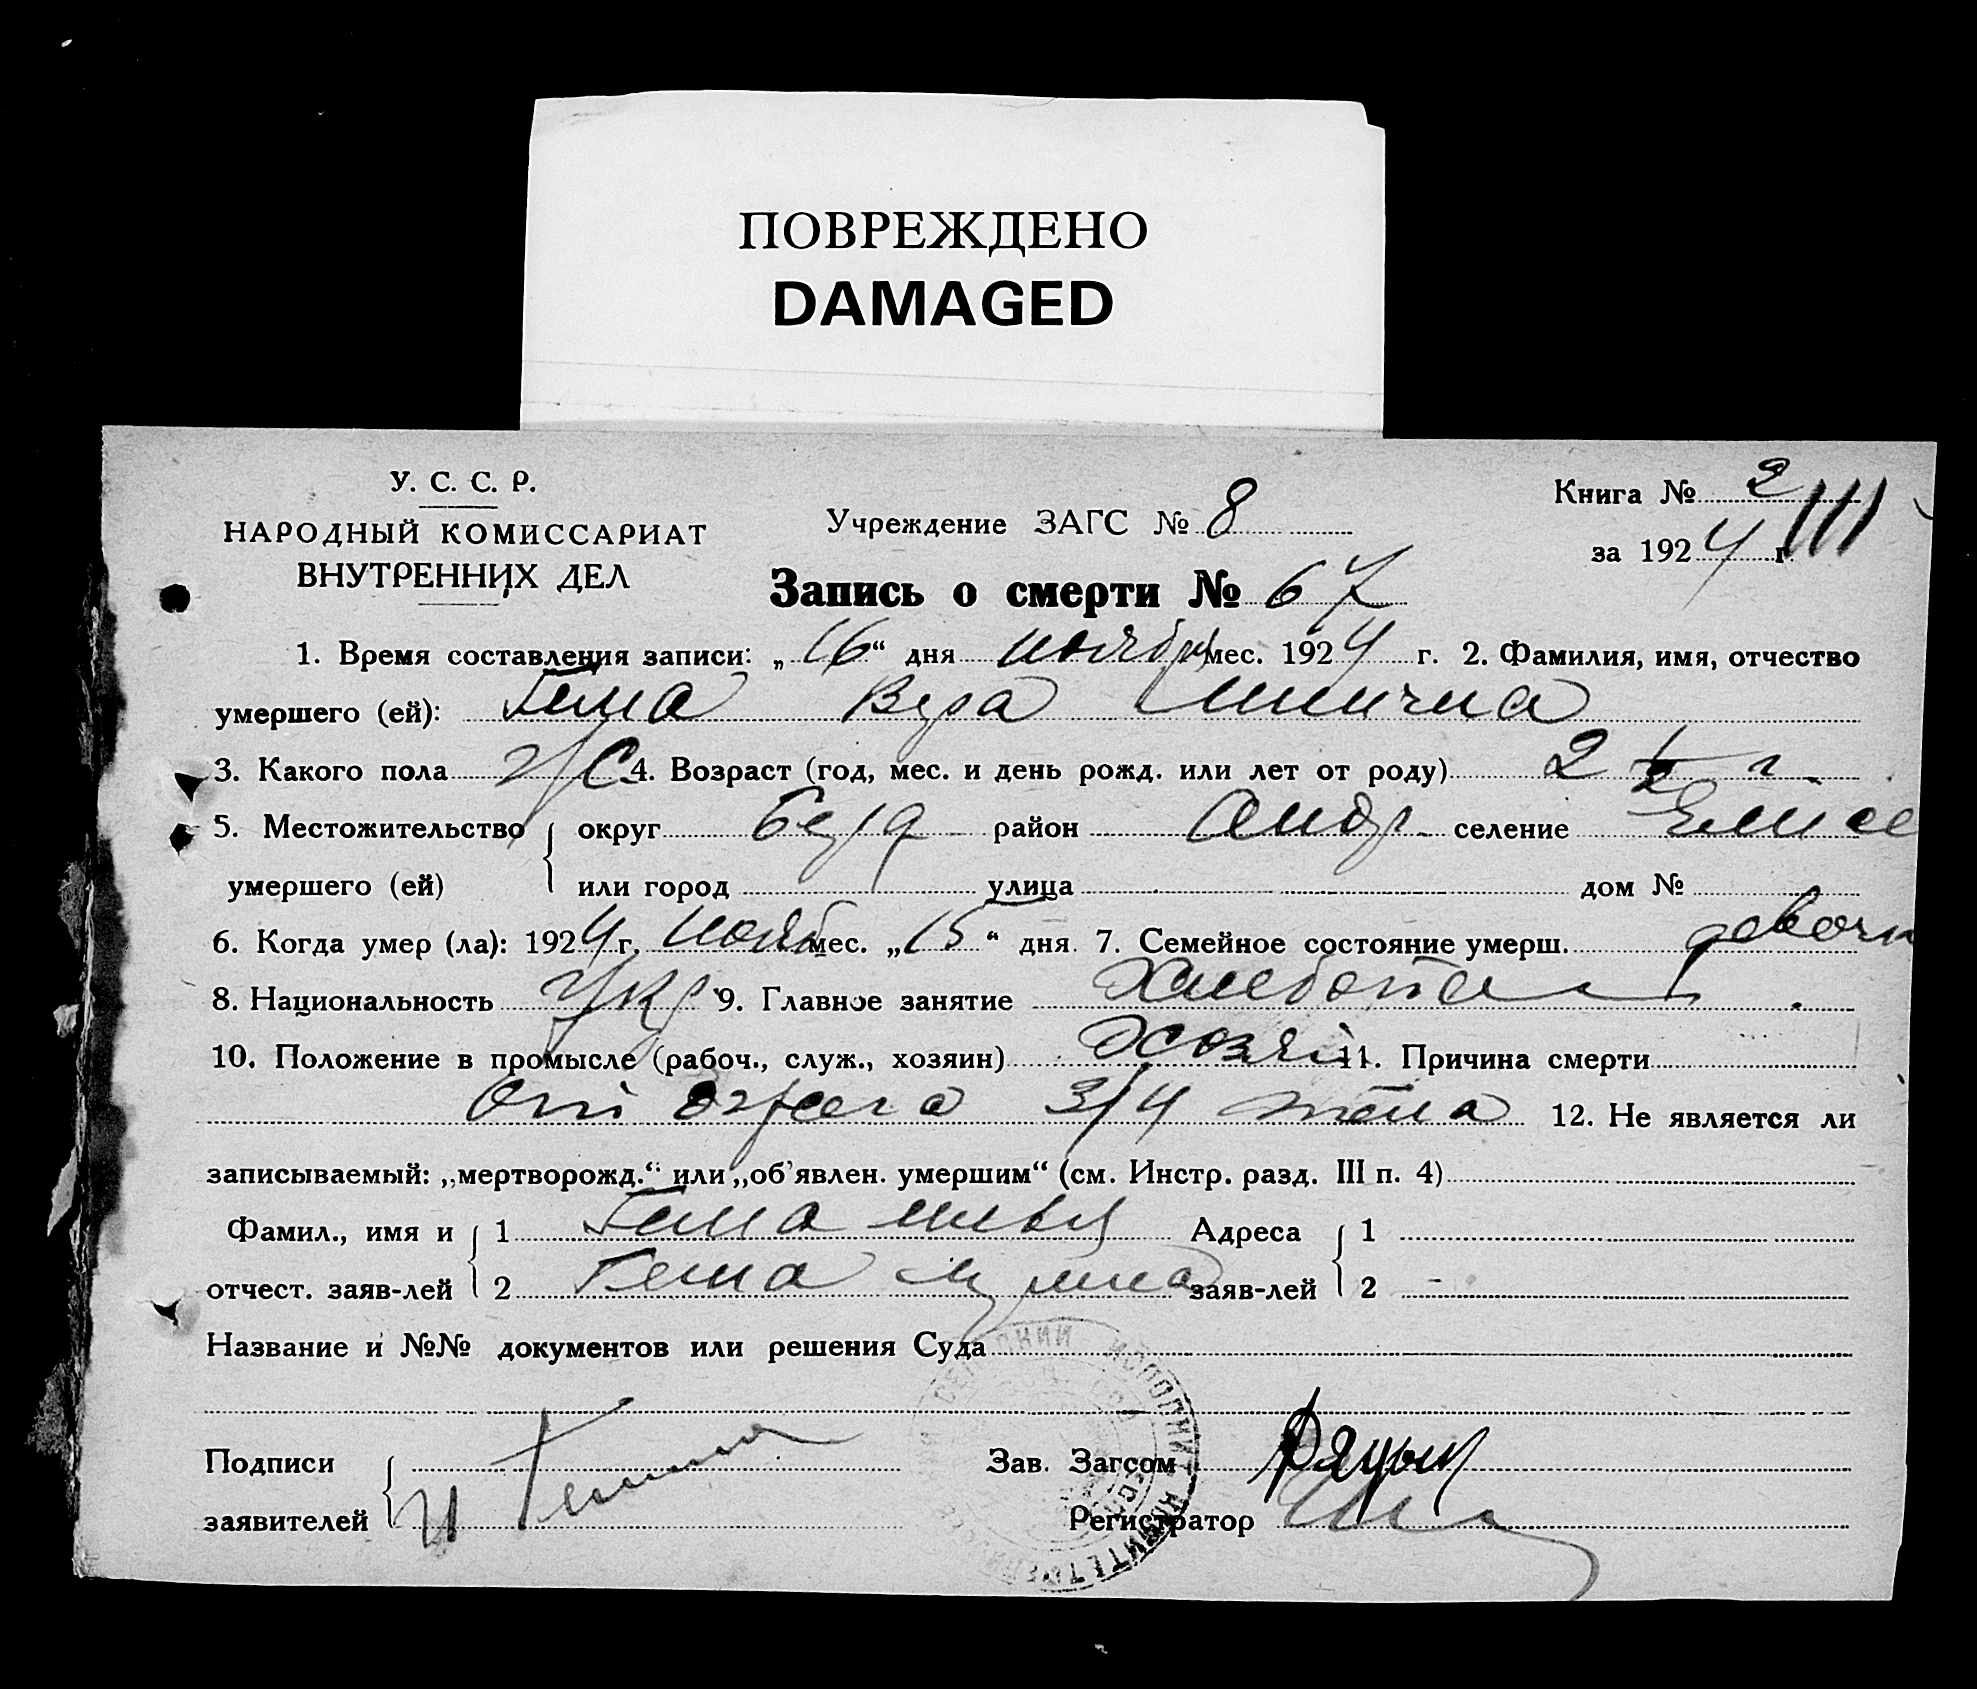 ПОВРЕЖДЕНО
DAMAGED
У. С. С. Р.
НАРОДНЫЙ КОМИССАРИАТ
ВНУТРЕННИХ ДЕЛ
Учреждение ЗАГС № 8
Книга № 2
за 1924 г. III
Запись о смерти № 67
1. Время составления записи: „16“ дня ноября мес. 1924 г. 2. Фамилия, имя, отчество
умершего (ей): Гема Вера
3. Какого пола 4. Возраст (год, мес. и день рожд. или лет от роду) 2 1/2 г.
5. Местожительство округ Берд район Андр селение
умершего (ей) или город улица дом №
6. Когда умер (ла): 1924 г. нояб мес. „15“ дня. 7. Семейное состояние умерш. девочк
8. Национальность Укр 9. Главное занятие
10. Положение в промысле (рабоч., служ., хозяин) хозяин 11. Причина смерти
От ожега 3/4 тела 12. Не является ли
записываемый: „мертворожд.“ или „об'явлен. умершим“ (см. Инстр. разд. III п. 4)
Фамил., имя и 1 Гема Илья Адреса 1
отчест. заяв-лей 2 Гема заяв-лей 2 -
Название и №№ документов или решения Суда
Подписи Зав. Загсом
заявителей Регистратор